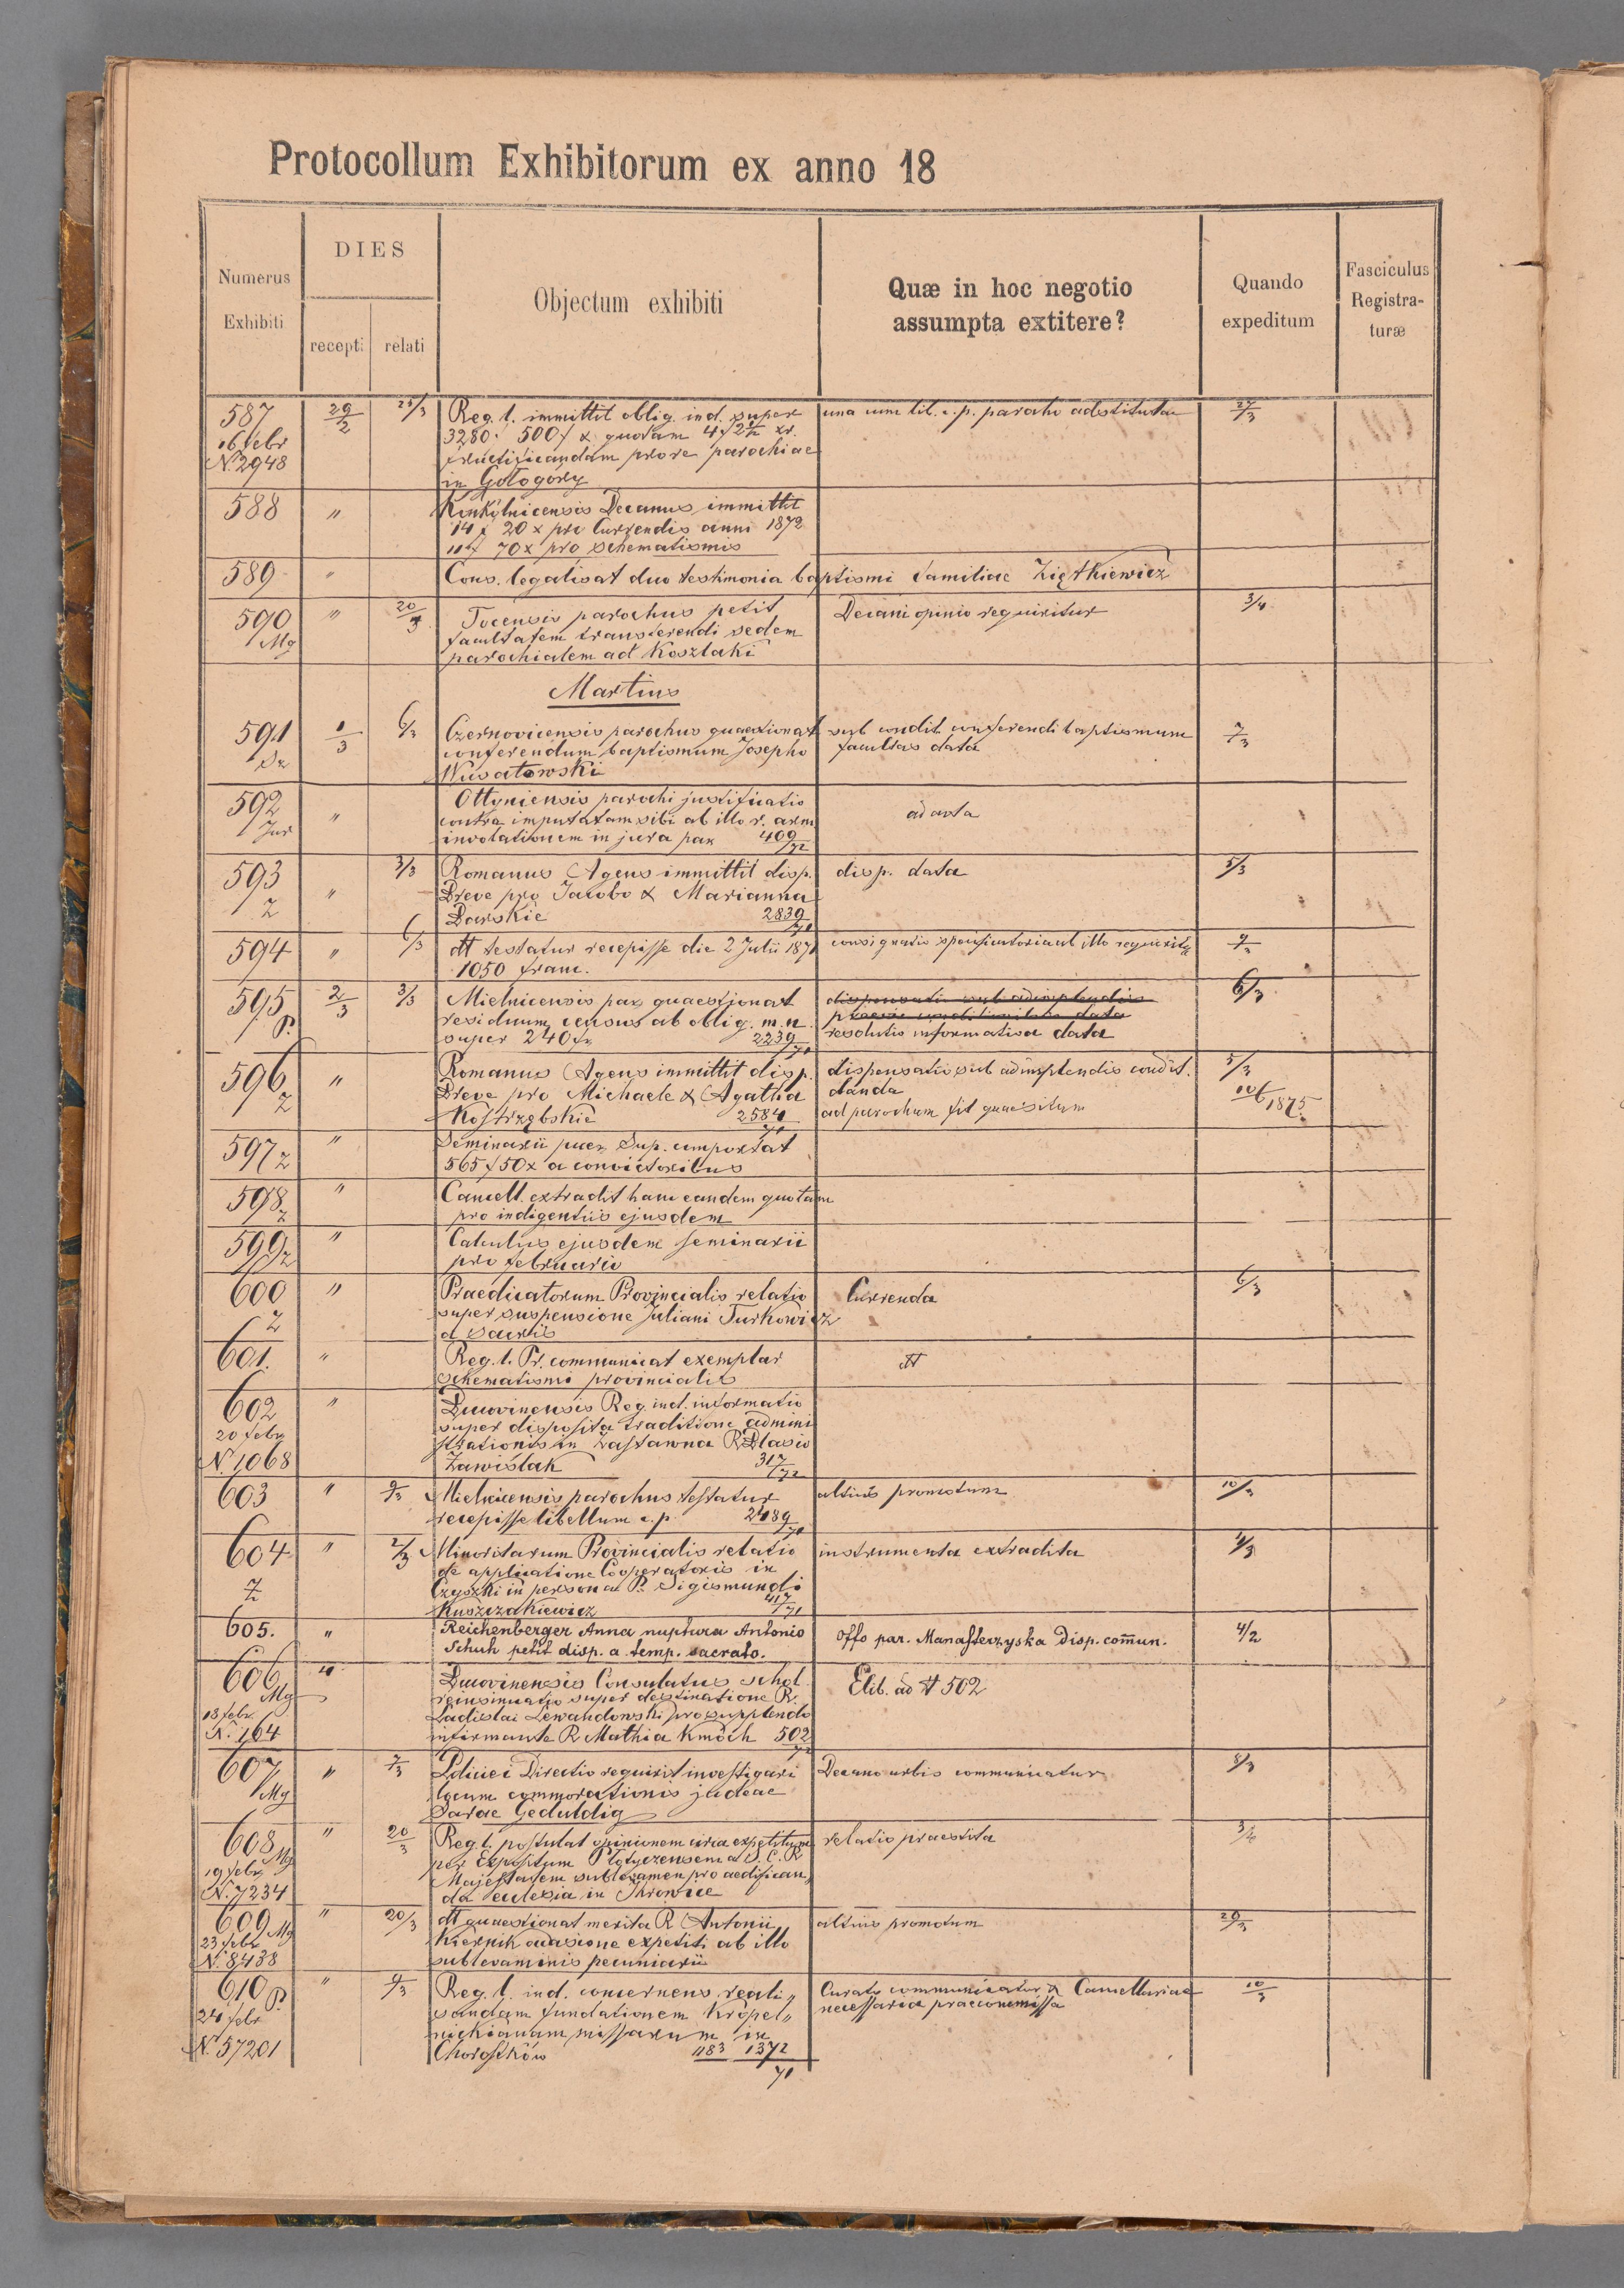 Protocollum Exhibitorum ex anno 18
Numerus Exhibiti
DIES
recepti
relati
Objectum exhibiti
Quæ in hoc negotio
assumpta extitere?
Quando
expeditum
Fasciculus
Registra-
turæ
587 29/2 Reg. t. immittit oblig. ind. super una cum lib. c. p. parocho adstituta 27/3
16 febr 3280. 500f & quotam
N. 2948 fructificandam pro re parochiae
in Gołogóry
588 " Konkolnicensis Decanus immittit
14 f 20 x pro Currendis anni 1872
70 x pro schematismis
589 " Cons. legalisat duo testimonia baptismi familiae Ziętkiewicz
590 " 20/3 Tocensis parochus petit Decani opinio requiritur 3/4
Mg facultatem transferendi sedem
parochialem ad Koszlaki
Martius
591 1/3 6/3 Czernovicensis parochus quaestionat sub condit. conferendi baptismum 7/3
conferendum baptismum Josepho facultas data
Wusatowski
592 " Ottyniensis parochi justificatio ad acta
Jur contra imputatam sibi ab illo r. arm
involationem in jura par 409/72
593 " 3/3 Romanus Agens immittit disp. disp. data 5/3
Z Breve pro Jacobo & Marianna
Darskie 2839/71
594 " 6/3 dtt testatur recepisse die 2 Julii 1871 consignatio specificatoria ab illo requisita 9/3
1050 franc.
595 2/3 3/3 Mielnicensis par quaestionat dispensatio sub adimplendis 6/3
P. residuum census ab oblig. m. n. data
super 240 fr 2239/71 resolutio informativa data
596 " Romanus Agens immittit disp. dispensatio sub adimplendis condit. 5/3
Z Breve pro Michaele & Agatha danda
Kostrzębskie 2584/71 ad parochum fit quaesitum 1875
597 Z " Seminarii puer. Sup. comportat
565 f 50 x a convictoribus
598 Z " Cancell. extradit hanc eandem quotam
pro indigentiis ejusdem
599 Z " Calculus ejusdem seminarii
pro februario
600 " Praedicatorum Provincialis relatio Currenda 6/3
Z super suspensione Juliani Turkowicz
a sacris
601. " Reg. t. Pr. communicat exemplar dtt
schematismi provincialis
602 " Bucovinensis Reg. ind. informatio
20 febr super disposita traditione admini
N. 1068 strationis in Zastawna R. Blasio
Zawiślak 317/72
603 " 9/3 Mielnicensis parochus testatur altius promotum 10/3
recepisse libellum c. p. 2489/71
604 " 2/3 Minoritarum Provincialis relatio instrumenta extradita 4/3
Z de applicatione Cooperatoris in
Czyszki in persona P. Sigismundi
Kuszczakiewicz 417/71
605. " Reichenberger Anna nuptura Antonio Offo par. Manasterzyska Disp. com̄un. 4/2
Schuh petit disp. a temp. sacrato.
606 " Bucovinensis Consulatus schol. Elib. ad # 502
Mg reinsinuatio super destinatione R.
18 febr. Ladislai Lewandowski pro supplendo
N. 164 infirmante R Mathia Kmoch 502/72
607 " 7/3 Policiei Directio requirit investigari Decano urbis communicatur 8/3
Mg locum commorationis judeae
Sarae Geduldig
608 " 20/3 Reg t. postulat opinionem circa expetitum relatio praestita
Mg per Expositum Płotyczensem a S. C. R
19 febr Majestatem sublevamen pro aedifican
N. 7234 da ecclesia in Ihrowice
609 " 20/3 dtt quaestionat merita R Antonii altius promotum 29/3
Mg Kiernik occasione expetiti ab illo
23 febr sublevaminis pecuniarii
N. 8438
610 " 9/3 Reg. t. ind. concernens reali„ Curato communicatur & Cancellariae 10/3
P. sandam fundationem Kropel„ necessaria praeconomissa
24 febr nickianam missarum in
N. 57201 Chorostków 1183 1372/71